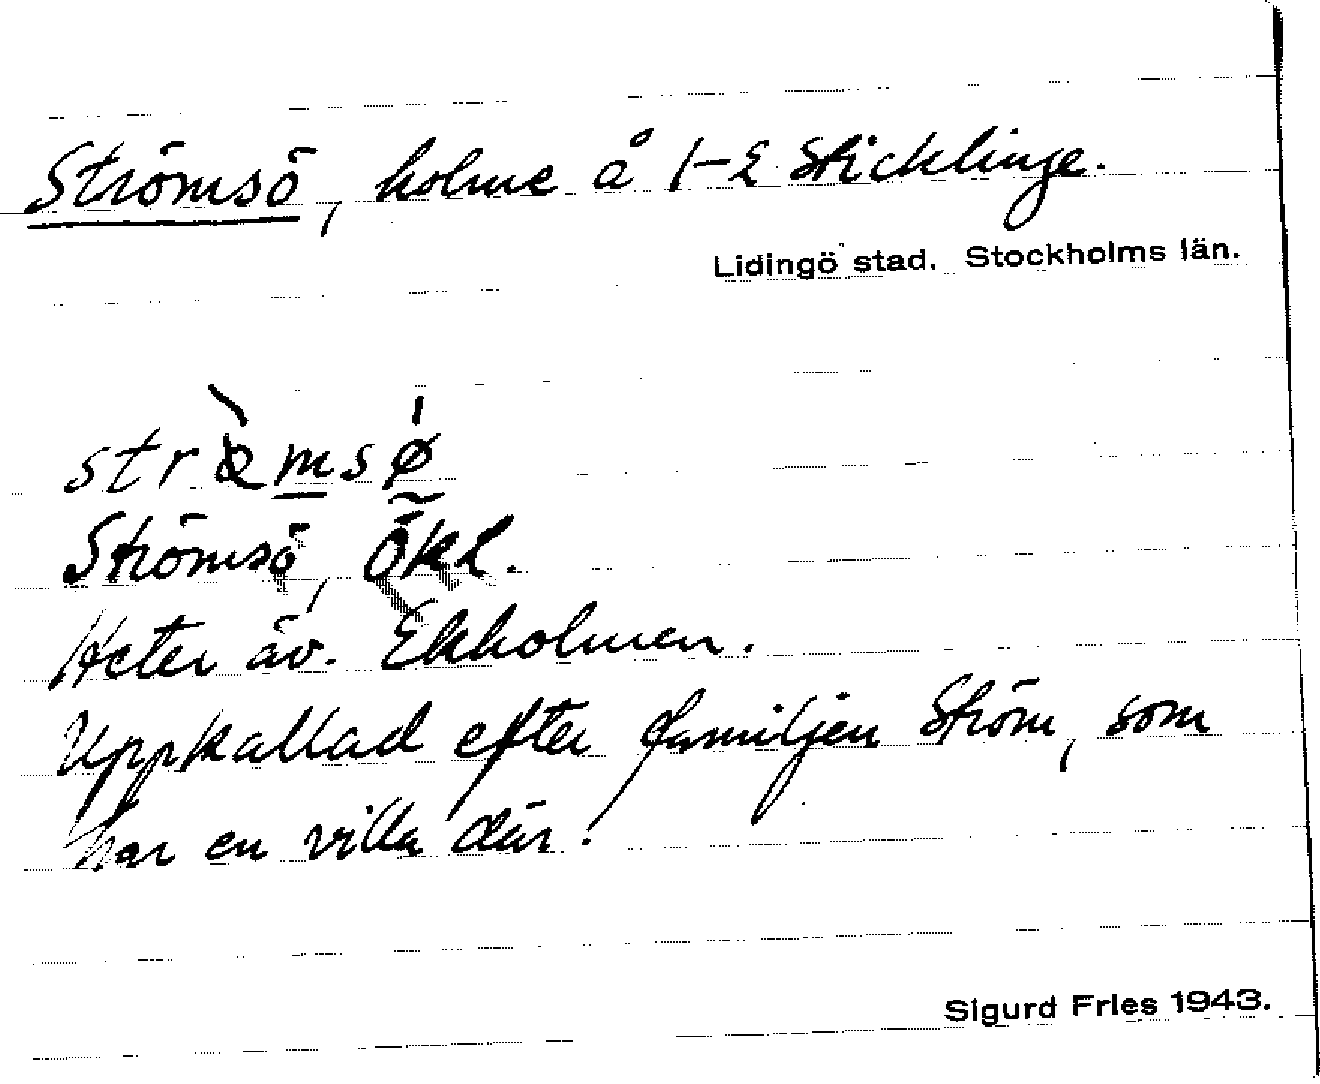 Strömsö, holme å 1-2 Sticklinge.
Lidingö stad. Stockholms län.
strömsø
Strömsö, Ökl.
Heter äv. Ekholmen.
Uppkallad efter familjen Ström, som
har en villa där.
Sigurd Fries 1943.